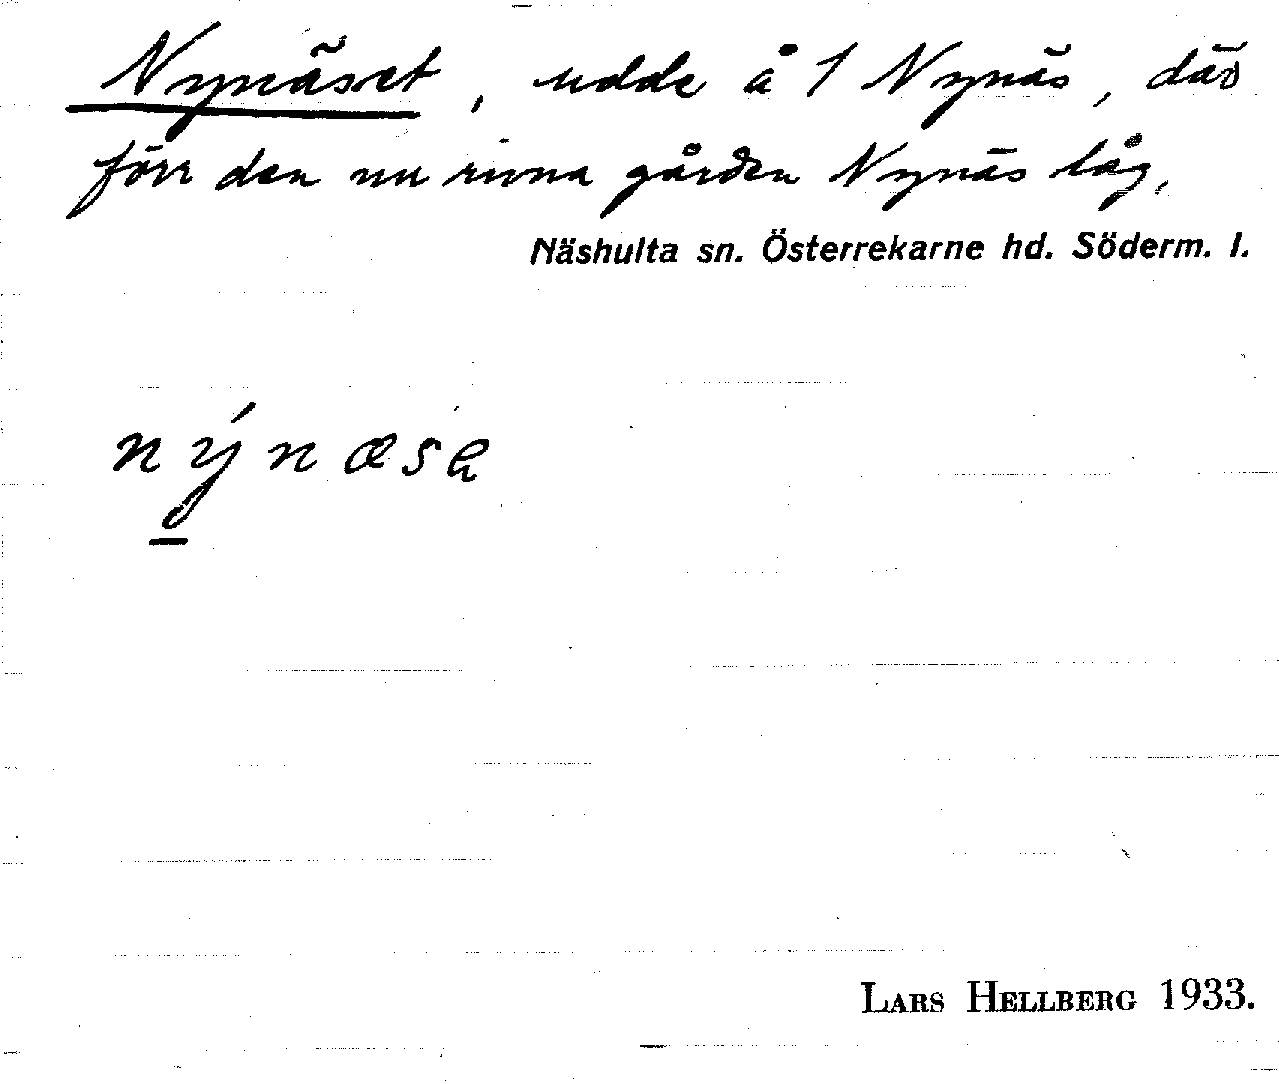 Nynäset, udde å 1 Nynäs, där
förr den nu rivna gården Nynäs låg,
Näshulta sn. Österrekarne hd. Söderm. l.
nýnæsa
LARS HELLBERG 1933.